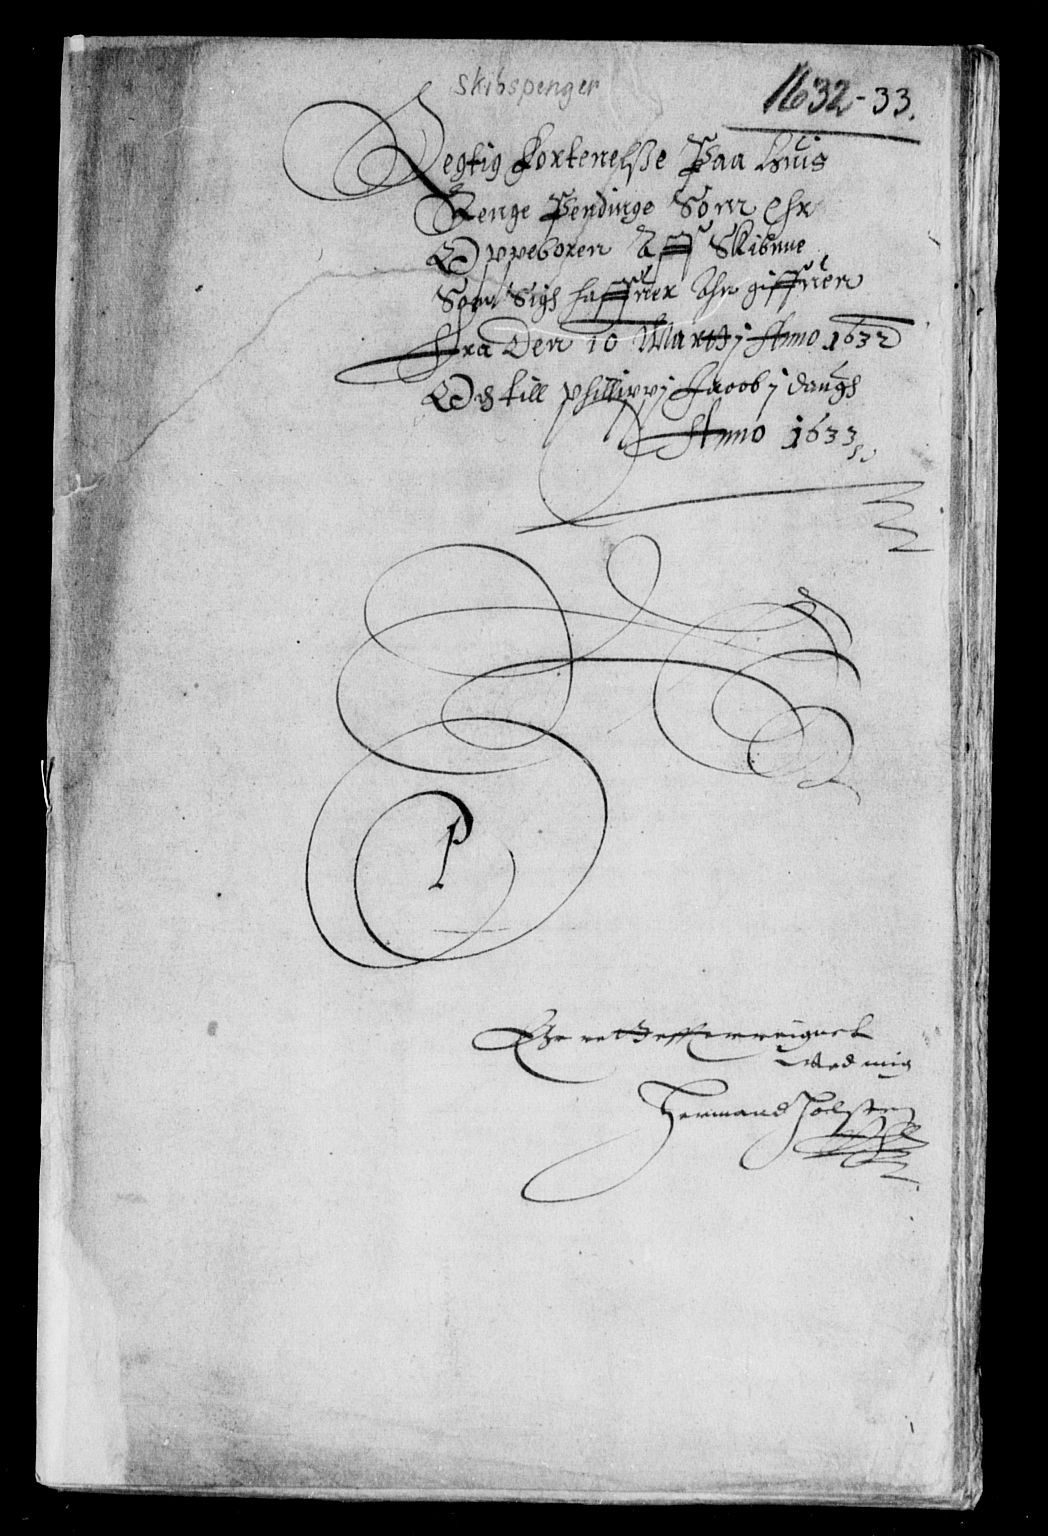 Skibspenger
1632-33.
Regtig Fortenelsse Paa huis
Penge Pendinge Som Ehr
Oppeboren Aff Skibene
Som Sigh haffuer her giffuen
Fra Den 10 Martij Anno 1632
Og till phillippj Jacobj daugh
Anno 1633
P
Med mig
Hermand Holsten